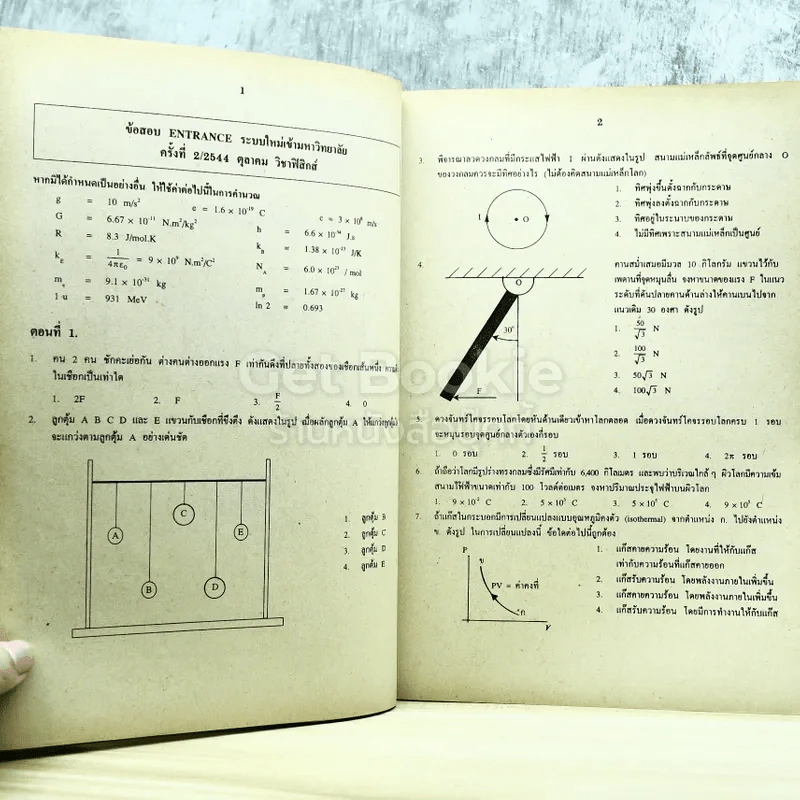 1
ข้อสอบ ENTRANCE ระบบใหม่เข้ามหาวิทยาลัย
ครั้งที่ 2/2544 ตุลาคม วิชาฟิสิกส์
หากมิได้กำหนดเป็นอย่างอื่น ให้ใช้ค่าต่อไปนี้ในการคำนวณ
g = 10 m/s² e = 1.6 × 10⁻¹⁹ C c = 3 × 10⁸ m/s
G = 6.67 × 10⁻¹¹ N.m²/kg² h = 6.6 × 10⁻³⁴ J.s
R = 8.3 J/mol.K k_B = 1.38 × 10⁻²³ J/K
k_E = 1/4πε₀ = 9 × 10⁹ N.m²/C² N_A = 6.0 × 10²³ / mol
m_e = 9.1 × 10⁻³¹ kg m_p = 1.67 × 10⁻²⁷ kg
1 u = 931 MeV ln 2 = 0.693
ตอนที่ 1.
1. คน 2 คน ชักคะเย่อกัน ต่างคนต่างออกแรง F เท่ากันดึงที่ปลายทั้งสองของเชือกเส้นหนึ่ง
ในเชือกเป็นเท่าใด
1. 2F 2. F 3. F/2 4. 0
2. ลูกตุ้ม A B C D และ E แขวนกับเชือกที่ขึงตึง ดังแสดงในรูป เมื่อผลักลูกตุ้ม A ให้แกว่ง
จะแกว่งตามลูกตุ้ม A อย่างเด่นชัด
A
B
C
D
E
1. ลูกตุ้ม B
2. ลูกตุ้ม C
3. ลูกตุ้ม D
4. ลูกตุ้ม E
2
3. พิจารณาลวดวงกลมที่มีกระแสไฟฟ้า I ผ่านดังแสดงในรูป สนามแม่เหล็กลัพธ์ที่จุดศูนย์กลาง O
ของวงกลมควรจะมีทิศอย่างไร (ไม่ต้องคิดสนามแม่เหล็กโลก)
I
O
1. ทิศพุ่งขึ้นตั้งฉากกับกระดาษ
2. ทิศพุ่งลงตั้งฉากกับกระดาษ
3. ทิศอยู่ในระนาบของกระดาษ
4. ไม่มีทิศเพราะสนามแม่เหล็กเป็นศูนย์
4.
O
30°
F
คานสม่ำเสมอมีมวล 10 กิโลกรัม แขวนไว้กับ
เพดานที่จุดหมุนลื่น จงหาขนาดของแรง F ในแนว
ระดับที่ดันปลายคานด้านล่างให้คานเบนไปจาก
แนวเดิม 30 องศา ดังรูป
1. 50/√3 N
2. 100/√3 N
3. 50√3 N
4. 100√3 N
5. ดวงจันทร์โคจรรอบโลกโดยหันด้านเดียวเข้าหาโลกตลอด เมื่อดวงจันทร์โคจรรอบโลกครบ 1 รอบ
จะหมุนรอบจุดศูนย์กลางตัวเองกี่รอบ
1. 0 รอบ 2. 1/2 รอบ 3. 1 รอบ 4. 2π รอบ
6. ถ้าถือว่าโลกมีรูปร่างทรงกลมซึ่งมีรัศมีเท่ากับ 6,400 กิโลเมตร และพบว่าบริเวณใกล้ ๆ ผิวโลกมีความเข้ม
สนามไฟฟ้าขนาดเท่ากับ 100 โวลต์ต่อเมตร จงหาปริมาณประจุไฟฟ้าบนผิวโลก
1. C 2. C 3. C 4. C
7. ถ้าแก๊สในกระบอกมีการเปลี่ยนแปลงแบบอุณหภูมิคงตัว (isothermal) จากตำแหน่ง ก. ไปยังตำแหน่ง
ข. ดังรูป ในการเปลี่ยนแปลงนี้ ข้อใดต่อไปนี้ถูกต้อง
P
ข
PV = ค่าคงที่
ก
V
1. แก๊สคายความร้อน โดยงานที่ให้กับแก๊ส
เท่ากับความร้อนที่แก๊สคายออก
2. แก๊สรับความร้อน โดยพลังงานภายในเพิ่มขึ้น
3. แก๊สคายความร้อน โดยพลังงานภายในเพิ่มขึ้น
4. แก๊สรับความร้อน โดยมีการทำงานให้กับแก๊ส
Get Bookie
ร้านหนังสือ